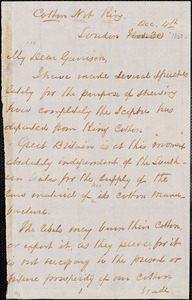 Cotton Not King.
London Dec. 4th
My Dear Garrison,
I have made several speeches
lately for the purpose of showing
how completely the Sceptre has
departed from King Cotton.
Great Britain is at this moment
absolutely independent of the South-
ern States for the supply of the
raw material of its cotton manu-
facture.
The rebels may burn their cotton
or export it, as they please, for it
is not necessary to the present or
future prosperity of our Cotton